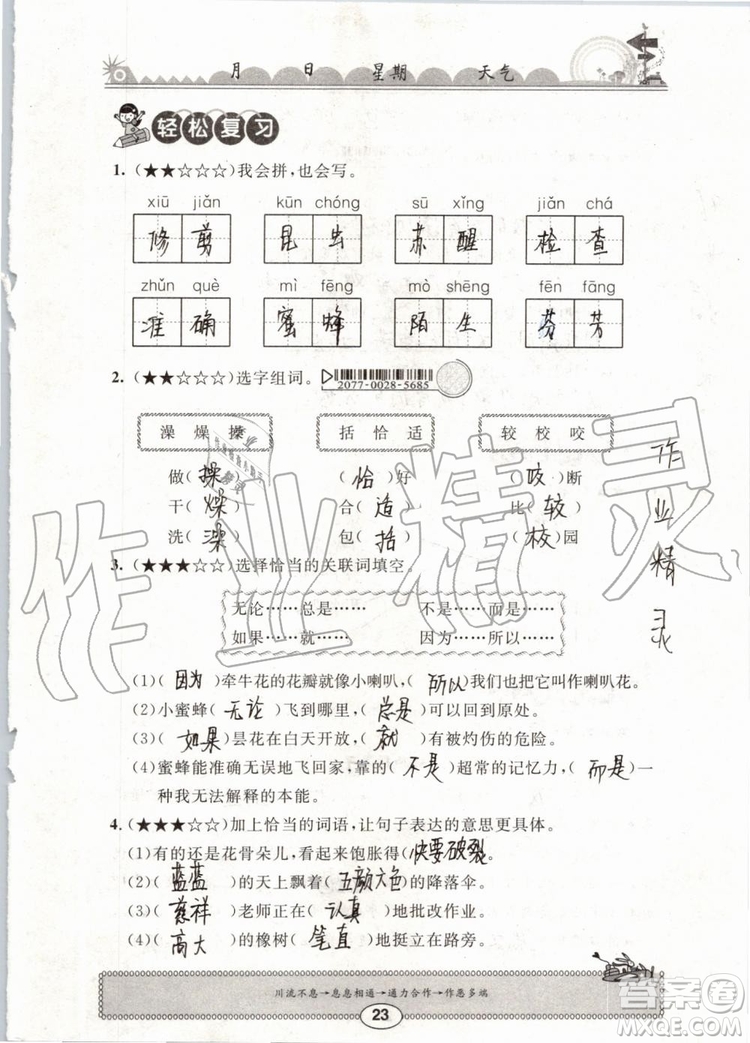 月 日 星期 天气
轻松复习
1. (★★☆☆☆)我会拼,也会写。
xiū jiǎn kūn chóng sū xǐng jiǎn chá
修 剪 昆 虫 苏 醒 检 查
zhǔn què mì fēng mò shēng fēn fāng
准 确 蜜 蜂 陌 生 芬 芳
2. (★★☆☆☆)选字组词。
2077-0028-5685
澡 燥 操 括 恰 适 较 校 咬
做(操) (恰)好 (咬)断
干(燥) 合(适) 比(较)
洗(澡) 包(括) (校)园
3. (★★★☆☆)选择恰当的关联词填空。
无论……总是…… 不是……而是……
如果……就…… 因为……所以……
(1)(因为)牵牛花的花瓣就像小喇叭,(所以)我们也把它叫作喇叭花。
(2)小蜜蜂(无论)飞到哪里,(总是)可以回到原处。
(3)(如果)昙花在白天开放,(就)有被灼伤的危险。
(4)蜜蜂能准确无误地飞回家,靠的(不是)超常的记忆力,(而是)一
种我无法解释的本能。
4. (★★★☆☆)加上恰当的词语,让句子表达的意思更具体。
(1)有的还是花骨朵儿,看起来饱胀得(快要破裂。
(2)(蓝蓝)的天上飘着(五颜六色)的降落伞。
(3)(慈祥)老师正在(认真)地批改作业。
(4)(高大)的橡树(笔直)地挺立在路旁。
川流不息→息息相通→通力合作→作恶多端
23
作业精灵
作业精灵
答案圈
MXQE.COM